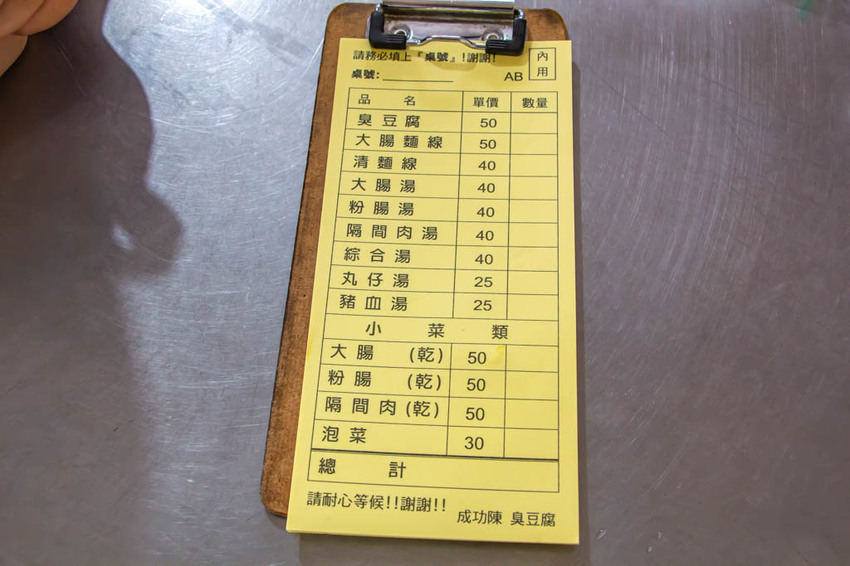 請務必填上『桌號』!謝謝!
桌號:________ AB 內用
品 名 單價 數量
臭豆腐 50
大腸麵線 50
清麵線 40
大腸湯 40
粉腸湯 40
隔間肉湯 40
綜合湯 40
丸仔湯 25
豬血湯 25
小 菜 類
大腸 (乾) 50
粉腸 (乾) 50
隔間肉(乾) 50
泡菜 30
總 計
請耐心等候!!謝謝!!
成功陳 臭豆腐